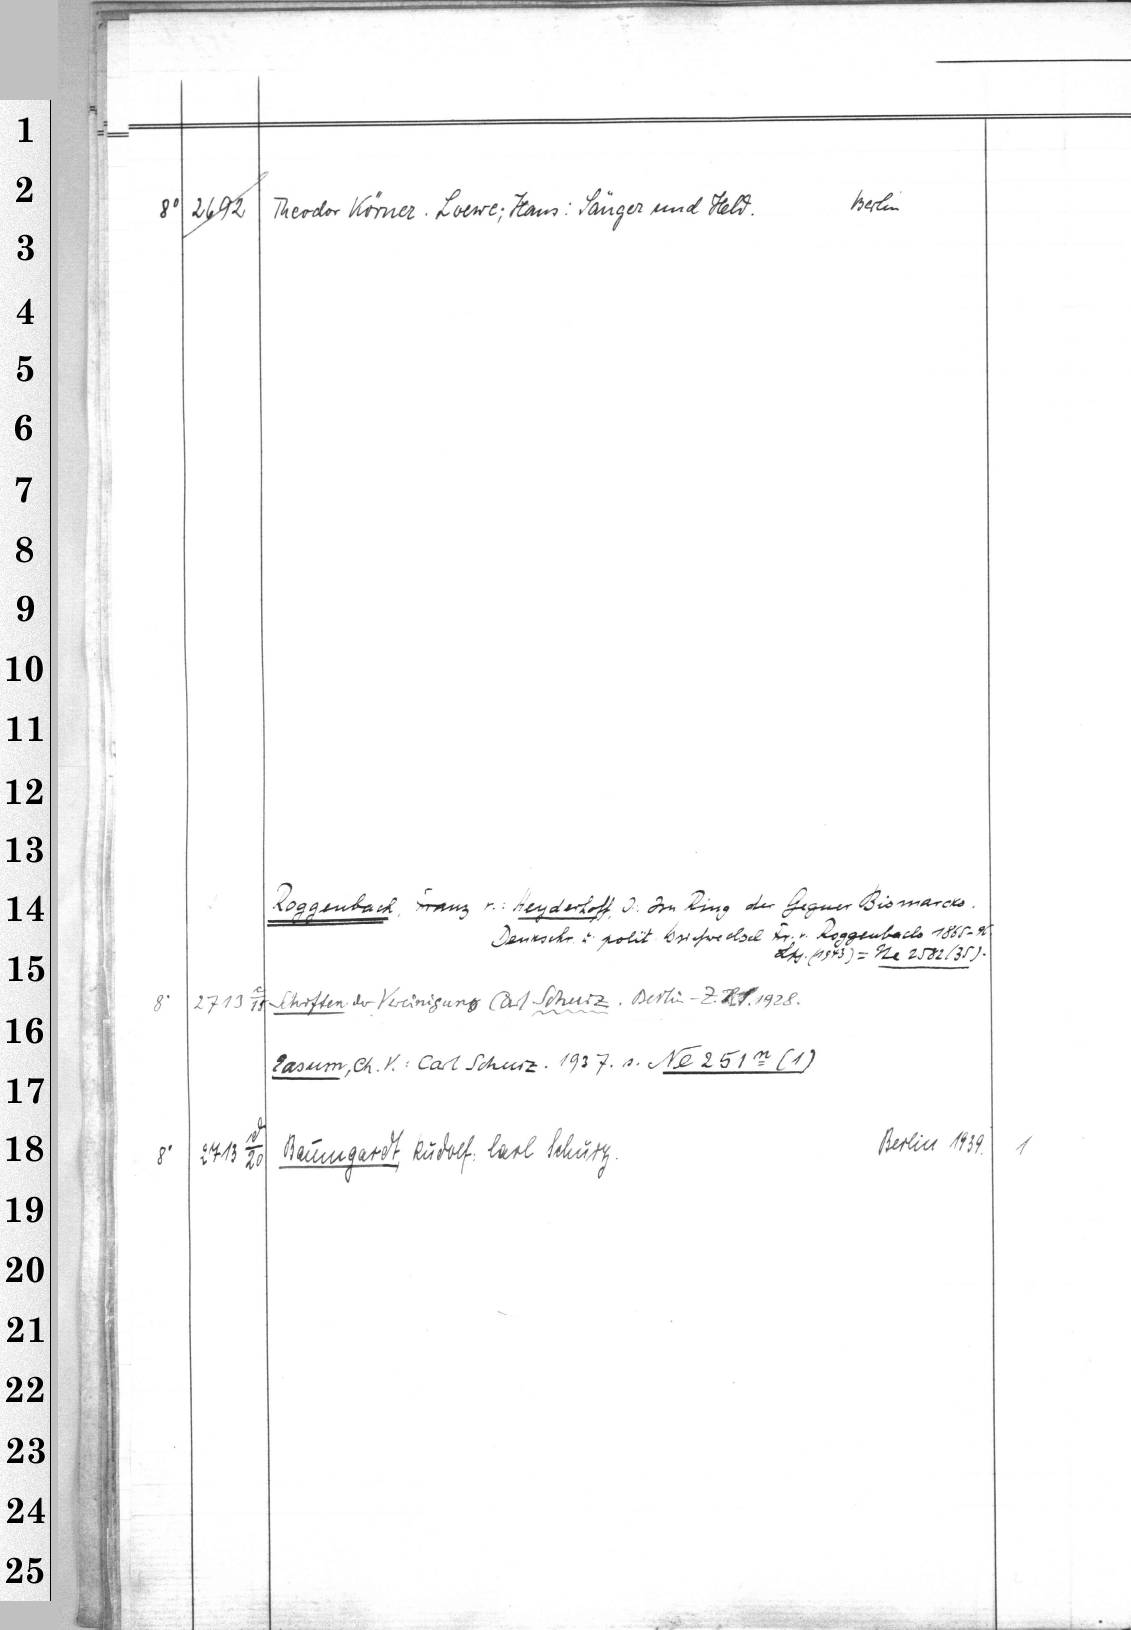 1
2
8° 2692 Theodor Körner. Loewe, Hans: Sänger und Held. Berlin
3
4
5
6
7
8
9
10
11
12
13
14 Roggenbach, Franz v.: Heyderhoff, J: Im Ring der Gegner Bismarcks.
Denkschr. u. polit Briefwechsel Fr. v. Roggenbachs 1865-96
15 Lpz. (1943) = Ne 2582 (35).
8° 2713 Schriften der Vereinigung Carl Schurz. Berlin-Z. 1928.
16
Easum, Ch. V.: Carl Schurz. 1937. s. Ne 251 n (1)
17
18 8° 2713 d/20 Baumgardt, Rudolf: Carl Schurz. Berlin 1939. 1
19
20
21
22
23
24
25